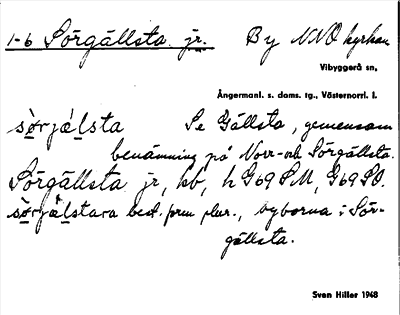 1-6 Sörgällsta jr. By NNO kyrkan
Vibyggerå sn,
Ångermanl. s. doms. tg., Västernorrl. l.
sø̀rjä́lsta Se Gällsta, gemensam
benämning på Norr- och Sörgällsta.
Sörgällsta jr, kb, hG69SM, G69SO.
sø̀rjä̀lstara best. form plur., byborna i Sör-
gällsta.
Sven Hiller 1948